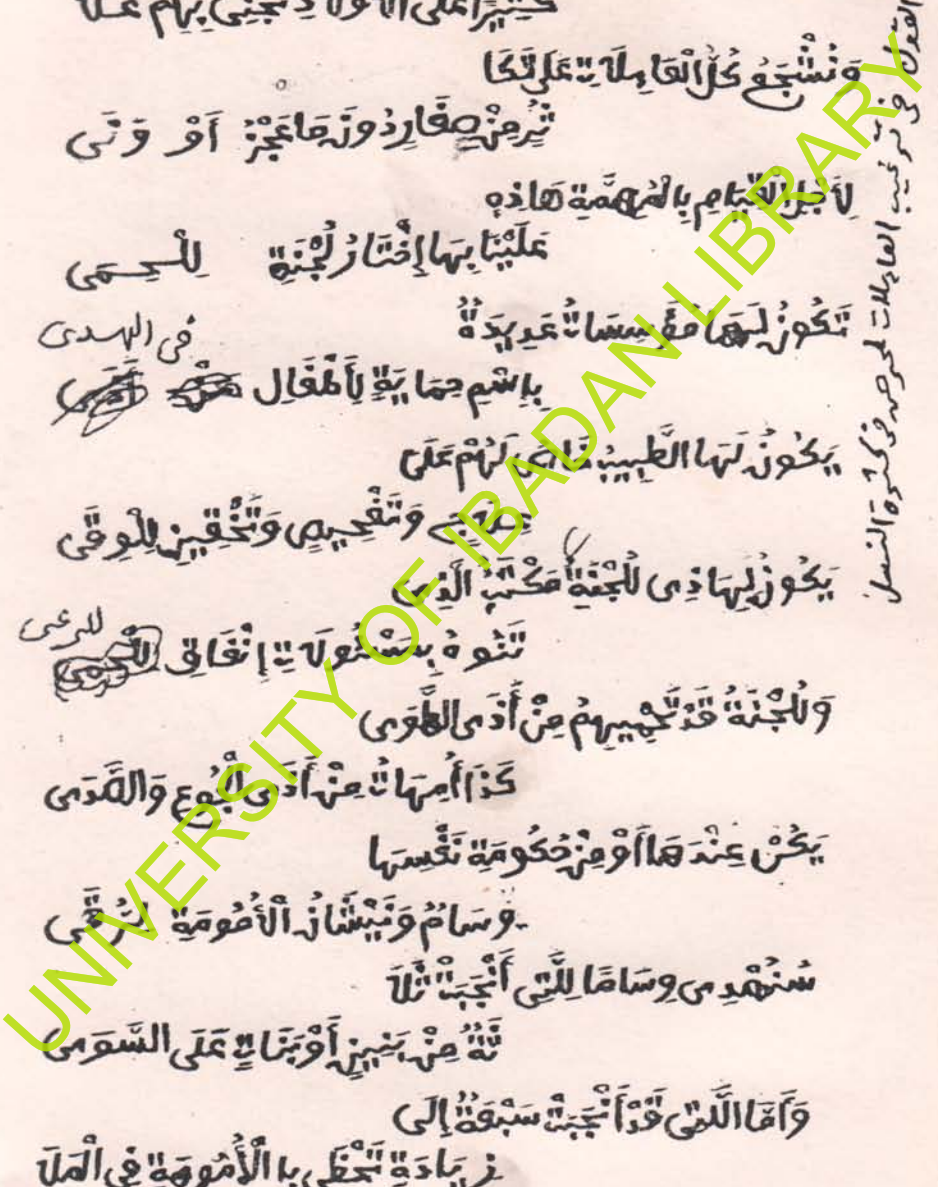 كثيرا على الأولاد نجني بهم علا
وَنُشْجِعُ كُلَّ الْعَامِلَاتِ عَلَى تَكَا
ثُرٍ مِنْ صِغَارٍ دُونَ مَا عَجْزٍ أَوْ وَنَى
لِأَجْلِ الْقِيَامِ بِالْمُهِمَّةِ هَاذِهِ
عَلَيْنَا بِهَا إِخْتَارُ لُجْنَةٍ لِلْحِمَى
تَكُونُ لَهَا مُؤَسِّسَاتٌ عَدِيدَةٌ
بِاسْمِ حِمَايَةٍ لِأَطْفَالٍ في الهدى
يَكُونُ لَهَا الطَّبِيبُ لَهُمْ عَلَى
وَتَفْحِيصٍ وَتَحْقِينٍ لِلْوِقَى
يَكُونُ لِهَاذِى لُّجْنَةٍ مَكْتَبُ الَّذِى
تَنُوهُ بِمَسْئُولَاتِ إِنْفَاقِ للرعى
وَلُجْنَةٌ قَدْ تَحْمِيهِمْ مِنْ أَذَى الطَّوَى
كَذَا أُمِّهَاتٌ مِنْ أَذَى لْجُوعِ وَالصَّدَى
يَكُنْ عِنْدَهَا أَوْ مِنْ حُكُومَةِ نَفْسِهَا
وِسَامٌ وَنَيْشَانُ الْأُمُومَةِ
سَنُهْدِى وِسَامًا لِلَّتِى أَنْجَبَتْ ثَلَا
ثَةً مِنْ بَنِينٍ أَوْ بَنَاتٍ عَلَى السَّوَى
وَأَمَّا الَّلتِى قَدْ أَنْجَبَتْ سَبْعَةً إِلَى
زِيَادَةٍ تَحْظَى بِالْأُمُومَةِ فِى الْمَلَا
القول في ترغيب العاملات للحرص في كثرة النسل
UNIVERSITY OF IBADAN LIBRARY